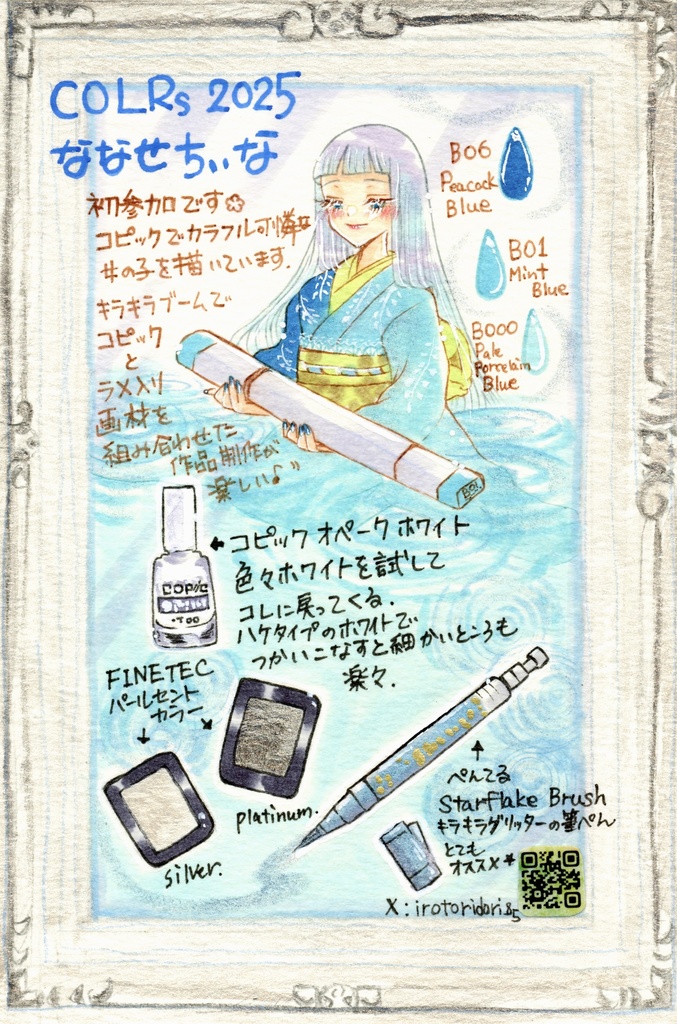 COLRs 2025
ななせちぃな
初参加です
コピックでカラフル可憐な
女の子を描いています.
キラキラブームで
コピック
と
ラメ入り
画材を
組み合わせた
作品制作が
楽しい♪
B06
Peacock
Blue
B01
Mint
Blue
B000
Pale
Porcelain
Blue
B01
← コピック オペーク ホワイト
色々ホワイトを試して
コレに戻ってくる.
ハケタイプのホワイトで
つかいこなすと細かいところも
楽々.
COPIC
FINETEC
パールセント
カラー
platinum.
silver.
ぺんてる
Starflake Brush
キラキラグリッターの筆ぺん
とても
オススメ*
X:irotoridori85